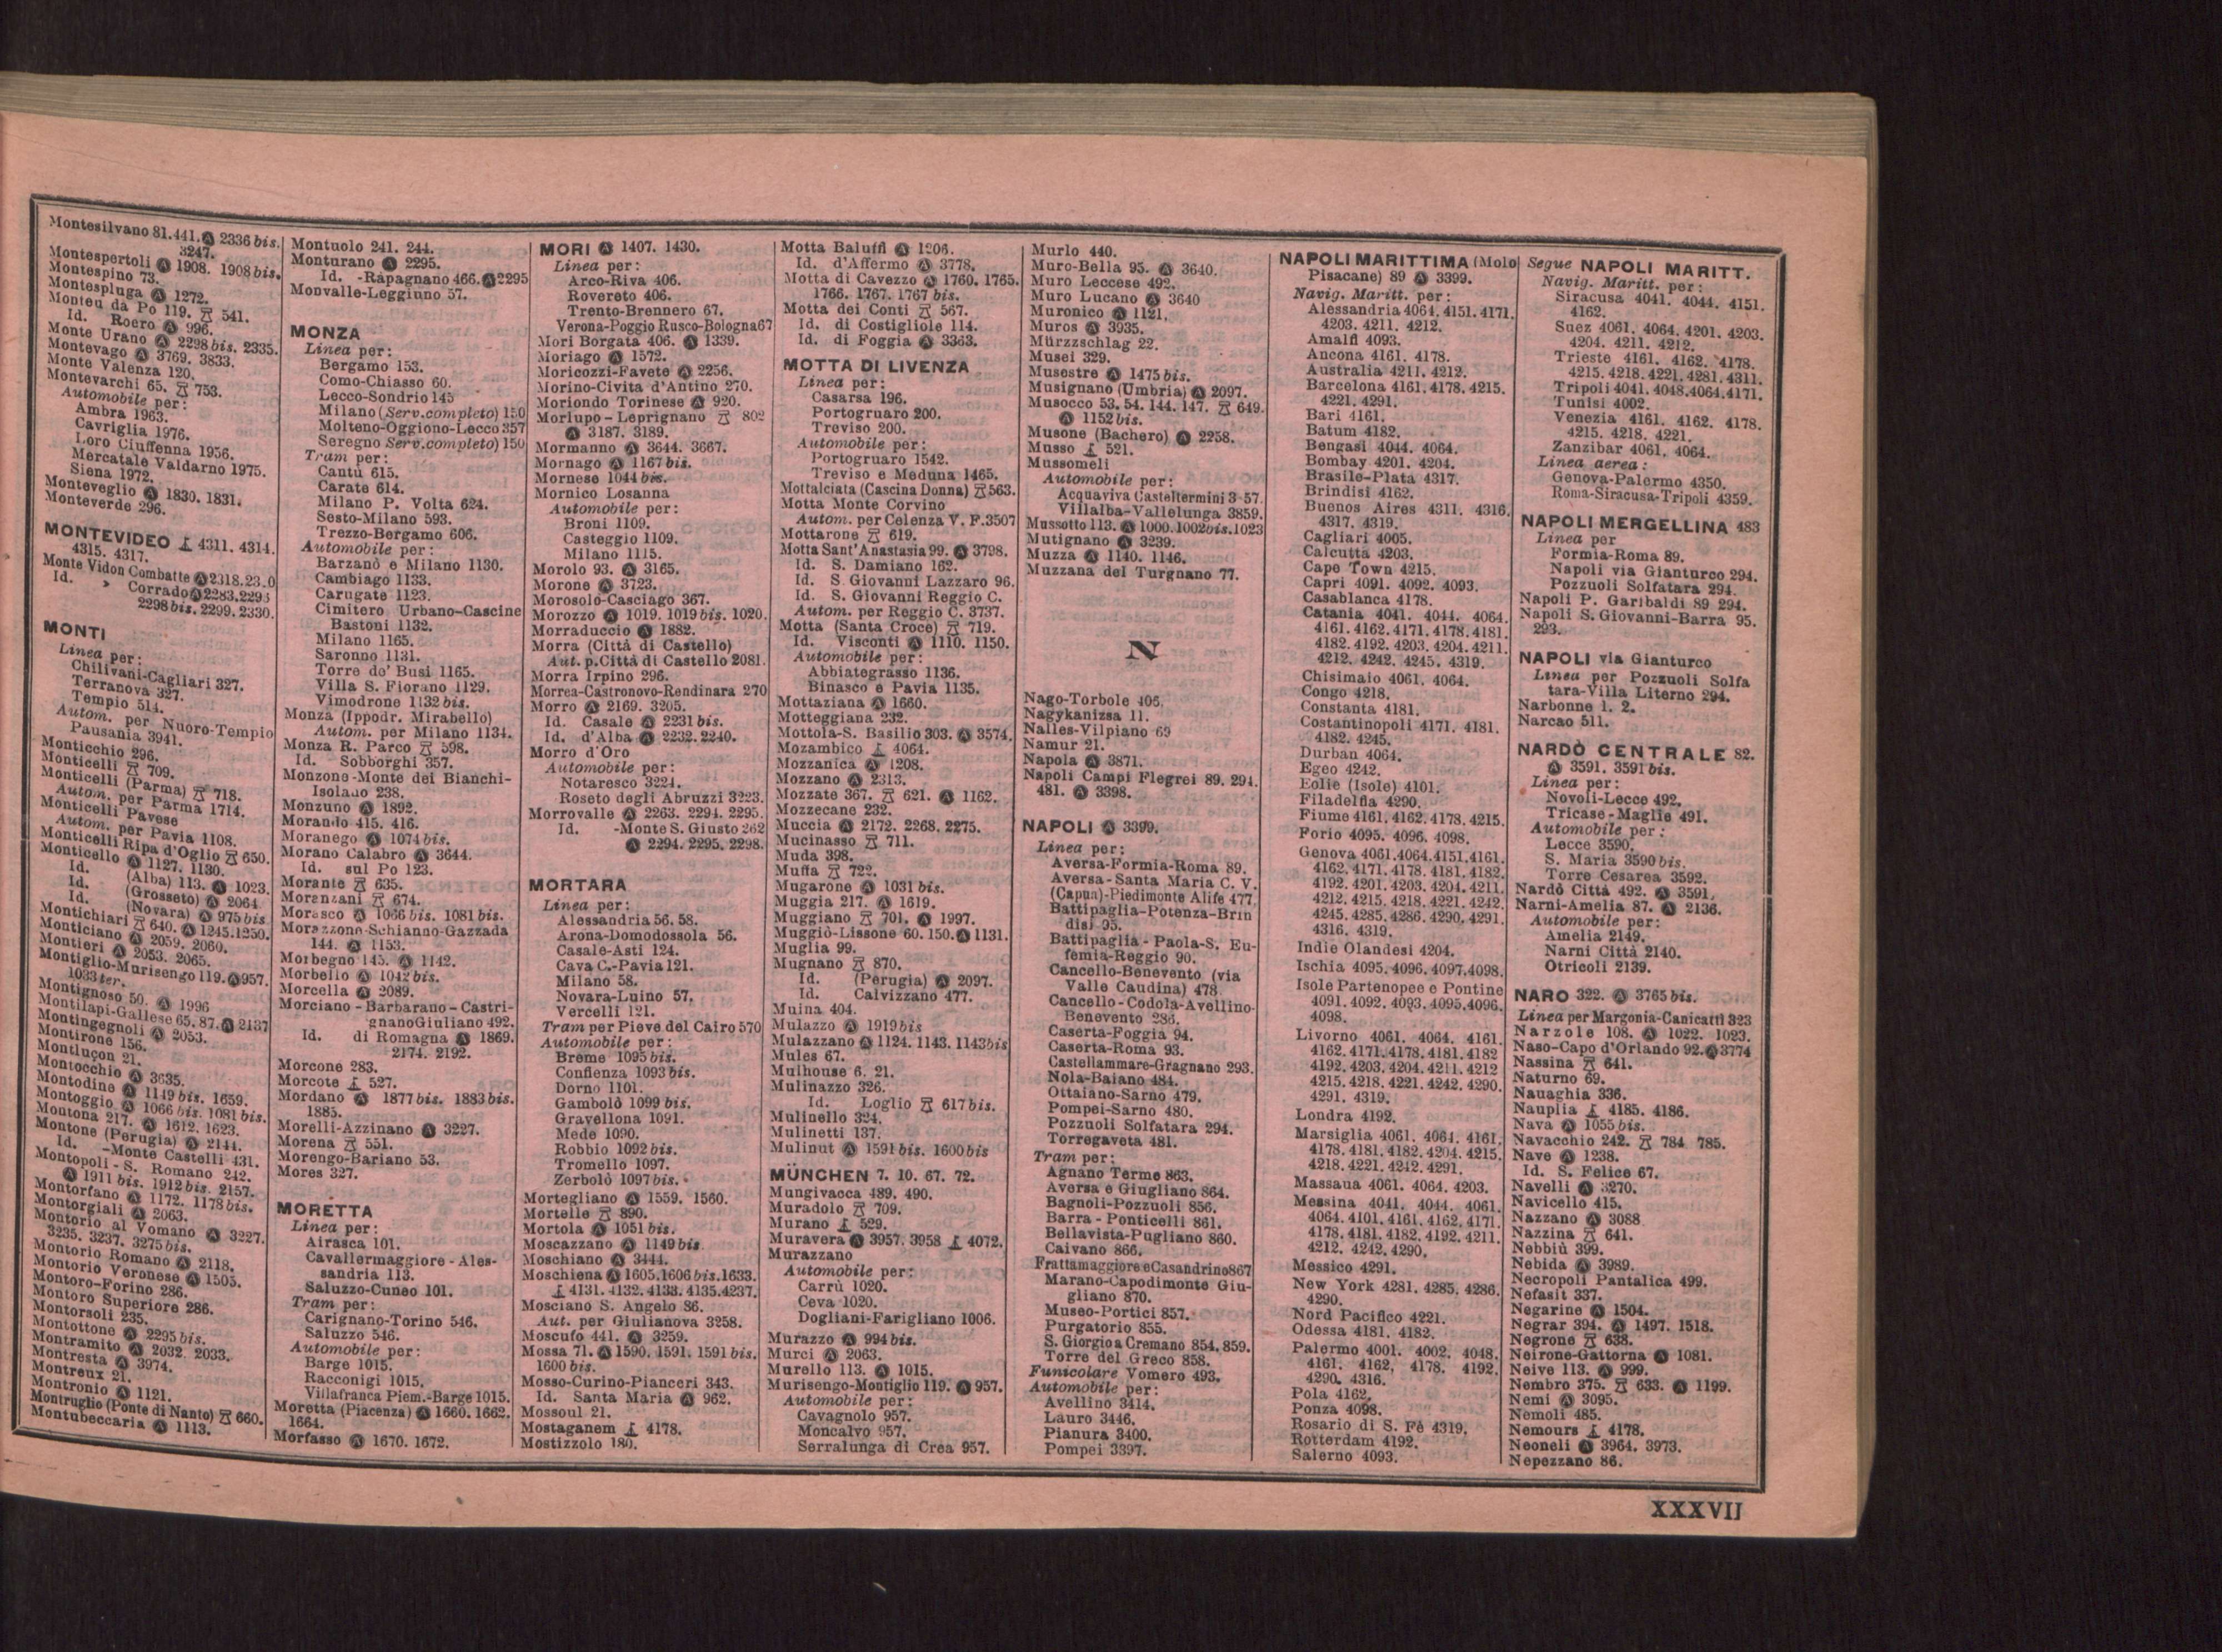 Montesilvano 81.441. Ⓐ 2336 bis.
3247.
Montespertoli Ⓐ 1908. 1908 bis.
Montespino 73.
Montespluga Ⓐ 1272.
Monteu da Po 119. 541.
Id. Roero Ⓐ 996.
Monte Urano Ⓐ 2298 bis. 2335.
Montevago Ⓐ 3769. 3833.
Monte Valenza 120.
Montevarchi 65. 753.
Automobile per:
Ambra 1963.
Cavriglia 1976.
Loro Ciuffenna 1956.
Mercatale Valdarno 1975.
Siena 1972.
Monteveglio Ⓐ 1830. 1831.
Monteverde 296.
MONTEVIDEO 4311. 4314.
4315. 4317.
Monte Vidon Combatte Ⓐ 2318.
Id. » Corrado Ⓐ 2283.2295
2298 bis. 2299. 2330.
MONTI
Linea per:
Chilivani-Cagliari 327.
Terranova 327.
Tempio 514.
Autom. per Nuoro-Tempio
Pausania 3941.
Monticchio 296.
Monticelli 709.
Monticelli (Parma) 718.
Autom. per Parma 1714.
Monticelli Pavese
Autom. per Pavia 1108.
Monticelli Ripa d'Oglio 650.
Monticello Ⓐ 1127. 1130.
Id. (Alba) 113. Ⓐ 1023.
Id. (Grosseto) Ⓐ 2064
Id. (Novara) Ⓐ 975 bis
Montichiari 640. Ⓐ 1245.1250.
Monticiano Ⓐ 2059. 2060.
Montieri Ⓐ 2053. 2065.
Montiglio-Murisengo 119. Ⓐ 957.
1033 ter.
Montignoso 50. Ⓐ 1996
Montilapi-Gallese 65. 87. Ⓐ 2137
Montingegnoli Ⓐ 2053.
Montirone 156.
Montluçon 21.
Montocchio Ⓐ 3635.
Montodine Ⓐ 1149 bis. 1659.
Montoggio Ⓐ 1066 bis. 1081 bis.
Montona 217. Ⓐ 1612. 1623.
Montone (Perugia) Ⓐ 2144.
Id. -Monte Castelli 431.
Montopoli - S. Romano 242.
Ⓐ 1911 bis. 1912 bis. 2157.
Montorfano Ⓐ 1172. 1178 bis.
Montorgiali Ⓐ 2063.
Montorio al Vomano Ⓐ 3227.
3235. 3237. 3275 bis.
Montorio Romano Ⓐ 2118.
Montorio Veronese Ⓐ 1505.
Montoro-Forino 286.
Montoro Superiore 286.
Montorsoli 235.
Montottone Ⓐ 2295 bis.
Montramito Ⓐ 2032. 2033.
Montresta Ⓐ 3974.
Montreux 21.
Montronio Ⓐ 1121.
Montruglio (Ponte di Nanto) 660.
Montubeccaria Ⓐ 1113.
Montuolo 241. 244.
Monturano Ⓐ 2295.
Id. -Rapagnano 466. Ⓐ 2295
Monvalle-Leggiuno 57.
MONZA
Linea per:
Bergamo 153.
Como-Chiasso 60.
Lecco-Sondrio 145
Milano (Serv.completo) 150
Molteno-Oggiono-Lecco 357
Seregno Serv.completo) 150
Tram per:
Cantù 615.
Carate 614.
Milano P. Volta 624.
Sesto-Milano 593.
Trezzo-Bergamo 606.
Automobile per:
Barzanò e Milano 1130.
Cambiago 1133.
Carugate 1123.
Cimitero Urbano-Cascine
Bastoni 1132.
Milano 1165.
Saronno 1131.
Torre de' Busi 1165.
Villa S. Fiorano 1129.
Vimodrone 1132 bis.
Monza (Ippodr. Mirabello)
Autom. per Milano 1134.
Monza R. Parco 598.
Id. Sobborghi 357.
Monzone-Monte dei Bianchi-
Isolano 238.
Monzuno Ⓐ 1892.
Morando 415. 416.
Moranego Ⓐ 1074 bis.
Morano Calabro Ⓐ 3644.
Id. sul Po 123.
Morante 635.
Morenzani 674.
Moresco Ⓐ 1066 bis. 1081 bis.
Morazzone-Schianno-Gazzada
144. Ⓐ 1153.
Morbegno 145. Ⓐ 1142.
Morbello Ⓐ 1042 bis.
Morcella Ⓐ 2089.
Morciano - Barbarano - Castri-
gnano Giuliano 492.
Id. di Romagna Ⓐ 1869.
2174. 2192.
Morcone 283.
Morcote 527.
Mordano Ⓐ 1877 bis. 1883 bis.
1885.
Morelli-Azzinano Ⓐ 3227.
Morena 551.
Morengo-Bariano 53.
Mores 327.
MORETTA
Linea per:
Airasca 101.
Cavallermaggiore - Ales-
sandria 113.
Saluzzo-Cuneo 101.
Tram per:
Carignano-Torino 546.
Saluzzo 546.
Automobile per:
Barge 1015.
Racconigi 1015.
Villafranca Piem.-Barge 1015.
Moretta (Piacenza) Ⓐ 1660. 1662.
1664.
Morfasso Ⓐ 1670. 1672.
MORI Ⓐ 1407. 1430.
Linea per:
Arco-Riva 406.
Rovereto 406.
Trento-Brennero 67.
Verona-Poggio Rusco-Bologna 67
Mori Borgata 406. Ⓐ 1339.
Moriago Ⓐ 1572.
Moricozzi-Favete Ⓐ 2256.
Morino-Civita d'Antino 270.
Moriondo Torinese Ⓐ 920.
Morlupo - Leprignano 802
Ⓐ 3187. 3189.
Mormanno Ⓐ 3644. 3667.
Mornago Ⓐ 1167 bis.
Mornese 1044 bis.
Mornico Losanna
Automobile per:
Broni 1109.
Casteggio 1109.
Milano 1115.
Morolo 93. Ⓐ 3165.
Morone Ⓐ 3723.
Morosolo-Casciago 367.
Morozzo Ⓐ 1019. 1019 bis. 1020.
Morraduccio Ⓐ 1882.
Morra (Città di Castello)
Aut. p. Città di Castello 2081.
Morra Irpino 296.
Morrea-Castronovo-Rendinara 270
Morro Ⓐ 2169. 3205.
Id. Casale Ⓐ 2231 bis.
Id. d'Alba Ⓐ 2232. 2240.
Morro d'Oro
Automobile per:
Notaresco 3224.
Roseto degli Abruzzi 3223.
Morrovalle Ⓐ 2263. 2294. 2295.
Id. -Monte S. Giusto 262
Ⓐ 2294. 2295. 2298.
MORTARA
Linea per:
Alessandria 56. 58.
Arona-Domodossola 56.
Casale-Asti 124.
Cava C.-Pavia 121.
Milano 58.
Novara-Luino 57.
Vercelli 121.
Tram per Pieve del Cairo 570
Automobile per:
Breme 1095 bis.
Confienza 1093 bis.
Dorno 1101.
Gambolò 1099 bis.
Gravellona 1091.
Mede 1090.
Robbio 1092 bis.
Tromello 1097.
Zerbolò 1097 bis.
Mortegliano Ⓐ 1559. 1560.
Mortelle 890.
Mortola Ⓐ 1051 bis.
Moscazzano Ⓐ 1149 bis
Moschiano Ⓐ 3444.
Moschiena Ⓐ 1605.1606 bis.1633.
4131. 4132. 4133. 4135.4237.
Mosciano S. Angelo 86.
Aut. per Giulianova 3258.
Moscufo 441. Ⓐ 3259.
Mossa 71. Ⓐ 1590. 1591. 1591 bis.
1600 bis.
Mosso-Curino-Pianceri 343.
Id. Santa Maria Ⓐ 962.
Mossoul 21.
Mostaganem 4178.
Mostizzolo 180.
Motta Baluffi Ⓐ 1206.
Id. d'Affermo Ⓐ 3778.
Motta di Cavezzo Ⓐ 1760. 1765.
1766. 1767. 1767 bis.
Motta dei Conti 567.
Id. di Costigliole 114.
Id. di Foggia Ⓐ 3363.
MOTTA DI LIVENZA
Linea per:
Casarsa 196.
Portogruaro 200.
Treviso 200.
Automobile per:
Portogruaro 1542.
Treviso e Meduna 1465.
Mottalciata (Cascina Donna) 563.
Motta Monte Corvino
Autom. per Celenza V. F. 3507
Mottarone 619.
Motta Sant'Anastasia 99. Ⓐ 3798.
Id. S. Damiano 162.
Id. S. Giovanni Lazzaro 96.
Id. S. Giovanni Reggio C.
Autom. per Reggio C. 3737.
Motta (Santa Croce) 719.
Id. Visconti Ⓐ 1110. 1150.
Automobile per:
Abbiategrasso 1136.
Binasco e Pavia 1135.
Mottaziana Ⓐ 1660.
Motteggiana 232.
Mottola-S. Basilio 303. Ⓐ 3574.
Mozambico 4064.
Mozzanica Ⓐ 1208.
Mozzano Ⓐ 2313.
Mozzate 367. 621. Ⓐ 1162.
Mozzecane 232.
Muccia Ⓐ 2172. 2268. 2275.
Mucinasso 711.
Muda 398.
Muffa 722.
Mugarone Ⓐ 1031 bis.
Muggia 217. Ⓐ 1619.
Muggiano 701. Ⓐ 1997.
Muggiò-Lissone 60. 150. Ⓐ 1131.
Muglia 99.
Mugnano 870.
Id. (Perugia) Ⓐ 2097.
Id. Calvizzano 477.
Muina 404.
Mulazzo Ⓐ 1919 bis
Mulazzano Ⓐ 1124. 1143. 1143 bis
Mules 67.
Mulhouse 6. 21.
Mulinazzo 326.
Id. Loglio 617 bis.
Mulinello 324.
Mulinetti 137.
Mulinut Ⓐ 1591 bis. 1600 bis
MÜNCHEN 7. 10. 67. 72.
Mungivacca 489. 490.
Muradolo 709.
Murano 529.
Muravera Ⓐ 3957. 3958 4072.
Murazzano
Automobile per:
Carrù 1020.
Ceva 1020.
Dogliani-Farigliano 1006.
Murazzo Ⓐ 994 bis.
Murci Ⓐ 2063.
Murello 113. Ⓐ 1015.
Murisengo-Montiglio 119. Ⓐ 957.
Automobile per:
Cavagnolo 957.
Moncalvo 957.
Serralunga di Crea 957.
Murlo 440.
Muro-Bella 95. Ⓐ 3640.
Muro Leccese 492.
Muro Lucano Ⓐ 3640
Muronico Ⓐ 1121.
Muros Ⓐ 3935.
Mürzzschlag 22.
Musei 329.
Musestre Ⓐ 1475 bis.
Musignano (Umbria) Ⓐ 2097.
Musocco 53. 54. 144. 147. 649.
Ⓐ 1152 bis.
Musone (Bachero) Ⓐ 2258.
Musso 521.
Mussomeli
Automobile per:
Acquaviva Casteltermini 3 57.
Villalba-Vallelunga 3859.
Mussotto 113. Ⓐ 1000. 1002 bis. 1023
Mutignano Ⓐ 3239.
Muzza Ⓐ 1140. 1146.
Muzzana del Turgnano 77.
N
Nago-Torbole 406.
Nagykanizsa 11.
Nalles-Vilpiano 69
Namur 21.
Napola Ⓐ 3871.
Napoli Campi Flegrei 89. 294.
481. Ⓐ 3398.
NAPOLI Ⓐ 3399.
Linea per:
Aversa-Formia-Roma 89.
Aversa-Santa Maria C. V.
(Capua)-Piedimonte Alife 477
Battipaglia-Potenza-Brin
disi 95.
Battipaglia - Paola-S. Eu-
femia-Reggio 90.
Cancello-Benevento (via
Valle Caudina) 478
Cancello-Codola-Avellino-
Benevento 286.
Caserta-Foggia 94.
Caserta-Roma 93.
Castellammare-Gragnano 293.
Nola-Baiano 484.
Ottaiano-Sarno 479.
Pompei-Sarno 480.
Pozzuoli Solfatara 294.
Torregaveta 481.
Tram per:
Agnano Terme 863.
Aversa e Giugliano 864.
Bagnoli-Pozzuoli 856.
Barra - Ponticelli 861.
Bellavista-Pugliano 860.
Caivano 866.
Frattamaggiore e Casandrino 867
Marano-Capodimonte Giu-
gliano 870.
Museo-Portici 857.
Purgatorio 855.
S. Giorgio a Cremano 854. 859.
Torre del Greco 858.
Funicolare Vomero 493.
Automobile per:
Avellino 3414.
Lauro 3446.
Pianura 3400.
Pompei 3397.
NAPOLI MARITTIMA (Molo
Pisacane) 89 Ⓐ 3399.
Navig. Maritt. per:
Alessandria 4064. 4151. 4171.
4203. 4211. 4212.
Amalfi 4093.
Ancona 4161. 4178.
Australia 4211. 4212.
Barcelona 4161. 4178. 4215.
4221. 4291.
Bari 4161.
Batum 4182.
Bengasi 4044. 4064.
Bombay 4201. 4204.
Brasile-Plata 4317.
Brindisi 4162.
Buenos Aires 4311. 4316.
4317. 4319.
Cagliari 4005.
Calcutta 4203.
Cape Town 4215.
Capri 4091. 4092. 4093.
Casablanca 4178.
Catania 4041. 4044. 4064.
4161. 4162. 4171. 4178. 4181.
4182. 4192. 4203. 4204. 4211.
4212. 4242. 4245. 4319.
Chisimaio 4061. 4064.
Congo 4218.
Constanta 4181.
Costantinopoli 4171. 4181.
4182. 4245.
Durban 4064.
Egeo 4242.
Eolie (Isole) 4101.
Filadelfia 4290.
Fiume 4161. 4162. 4178. 4215.
Forio 4095. 4096. 4098.
Genova 4061.4064.4151.4161.
4162. 4171. 4178. 4181. 4182.
4192. 4201. 4203. 4204. 4211.
4212. 4215. 4218. 4221. 4242.
4245. 4285. 4286. 4290. 4291.
4316. 4319.
Indie Olandesi 4204.
Ischia 4095. 4096. 4097. 4098.
Isole Partenopee e Pontine
4091. 4092. 4093. 4095. 4096.
4098.
Livorno 4061. 4064. 4161.
4162. 4171. 4178. 4181. 4182
4192. 4203. 4204. 4211. 4212
4215. 4218. 4221. 4242. 4290.
4291. 4319.
Londra 4192.
Marsiglia 4061. 4064. 4161.
4178. 4181. 4182. 4204. 4215.
4218. 4221. 4242. 4291.
Massaua 4061. 4064. 4203.
Messina 4041. 4044. 4061.
4064. 4101. 4161. 4162. 4171.
4178. 4181. 4182. 4192. 4211.
4212. 4242. 4290.
Messico 4291.
New York 4281. 4285. 4286.
4290.
Nord Pacifico 4221.
Odessa 4181. 4182.
Palermo 4001. 4002. 4048.
4161. 4162. 4178. 4192.
4290. 4316.
Pola 4162.
Ponza 4098.
Rosario di S. Fè 4319.
Rotterdam 4192.
Salerno 4093.
Segue NAPOLI MARITT.
Navig. Maritt. per:
Siracusa 4041. 4044. 4151.
4162.
Suez 4061. 4064. 4201. 4203.
4204. 4211. 4212.
Trieste 4161. 4162. 4178.
4215. 4218. 4221. 4281. 4311.
Tripoli 4041. 4048. 4064. 4171.
Tunisi 4002.
Venezia 4161. 4162. 4178.
4215. 4218. 4221.
Zanzibar 4061. 4064.
Linea aerea:
Genova-Palermo 4350.
Roma-Siracusa-Tripoli 4359.
NAPOLI MERGELLINA 483
Linea per
Formia-Roma 89.
Napoli via Gianturco 294.
Pozzuoli Solfatara 294.
Napoli P. Garibaldi 89 294.
Napoli S. Giovanni-Barra 95.
293.
NAPOLI via Gianturco
Linea per Pozzuoli Solfa
tara-Villa Literno 294.
Narbonne 1. 2.
Narcao 511.
NARDÒ CENTRALE 82.
Ⓐ 3591. 3591 bis.
Linea per:
Novoli-Lecce 492.
Tricase-Maglie 491.
Automobile per:
Lecce 3590.
S. Maria 3590 bis.
Torre Cesarea 3592.
Nardò Città 492. Ⓐ 3591.
Narni-Amelia 87. Ⓐ 2136.
Automobile per:
Amelia 2149.
Narni Città 2140.
Otricoli 2139.
NARO 322. Ⓐ 3765 bis.
Linea per Margonia-Canicattì 323
Narzole 108. Ⓐ 1022. 1023.
Naso-Capo d'Orlando 92. Ⓐ 3774
Nassina 641.
Naturno 69.
Nauaghia 336.
Nauplia 4185. 4186.
Nava Ⓐ 1055 bis.
Navacchio 242. 784 785.
Nave Ⓐ 1238.
Id. S. Felice 67.
Navelli Ⓐ 3270.
Navicello 415.
Nazzano Ⓐ 3088
Nazzina 641.
Nebbiù 399.
Nebida Ⓐ 3989.
Necropoli Pantalica 499.
Nefasit 337.
Negarine Ⓐ 1504.
Negrar 394. Ⓐ 1497. 1518.
Negrone 638.
Neirone-Gattorna Ⓐ 1081.
Neive 113. Ⓐ 999.
Nembro 375. 633. Ⓐ 1199.
Nemi Ⓐ 3095.
Nemoli 485.
Nemours 4178.
Neoneli Ⓐ 3964. 3973.
Nepezzano 86.
XXXVIJ